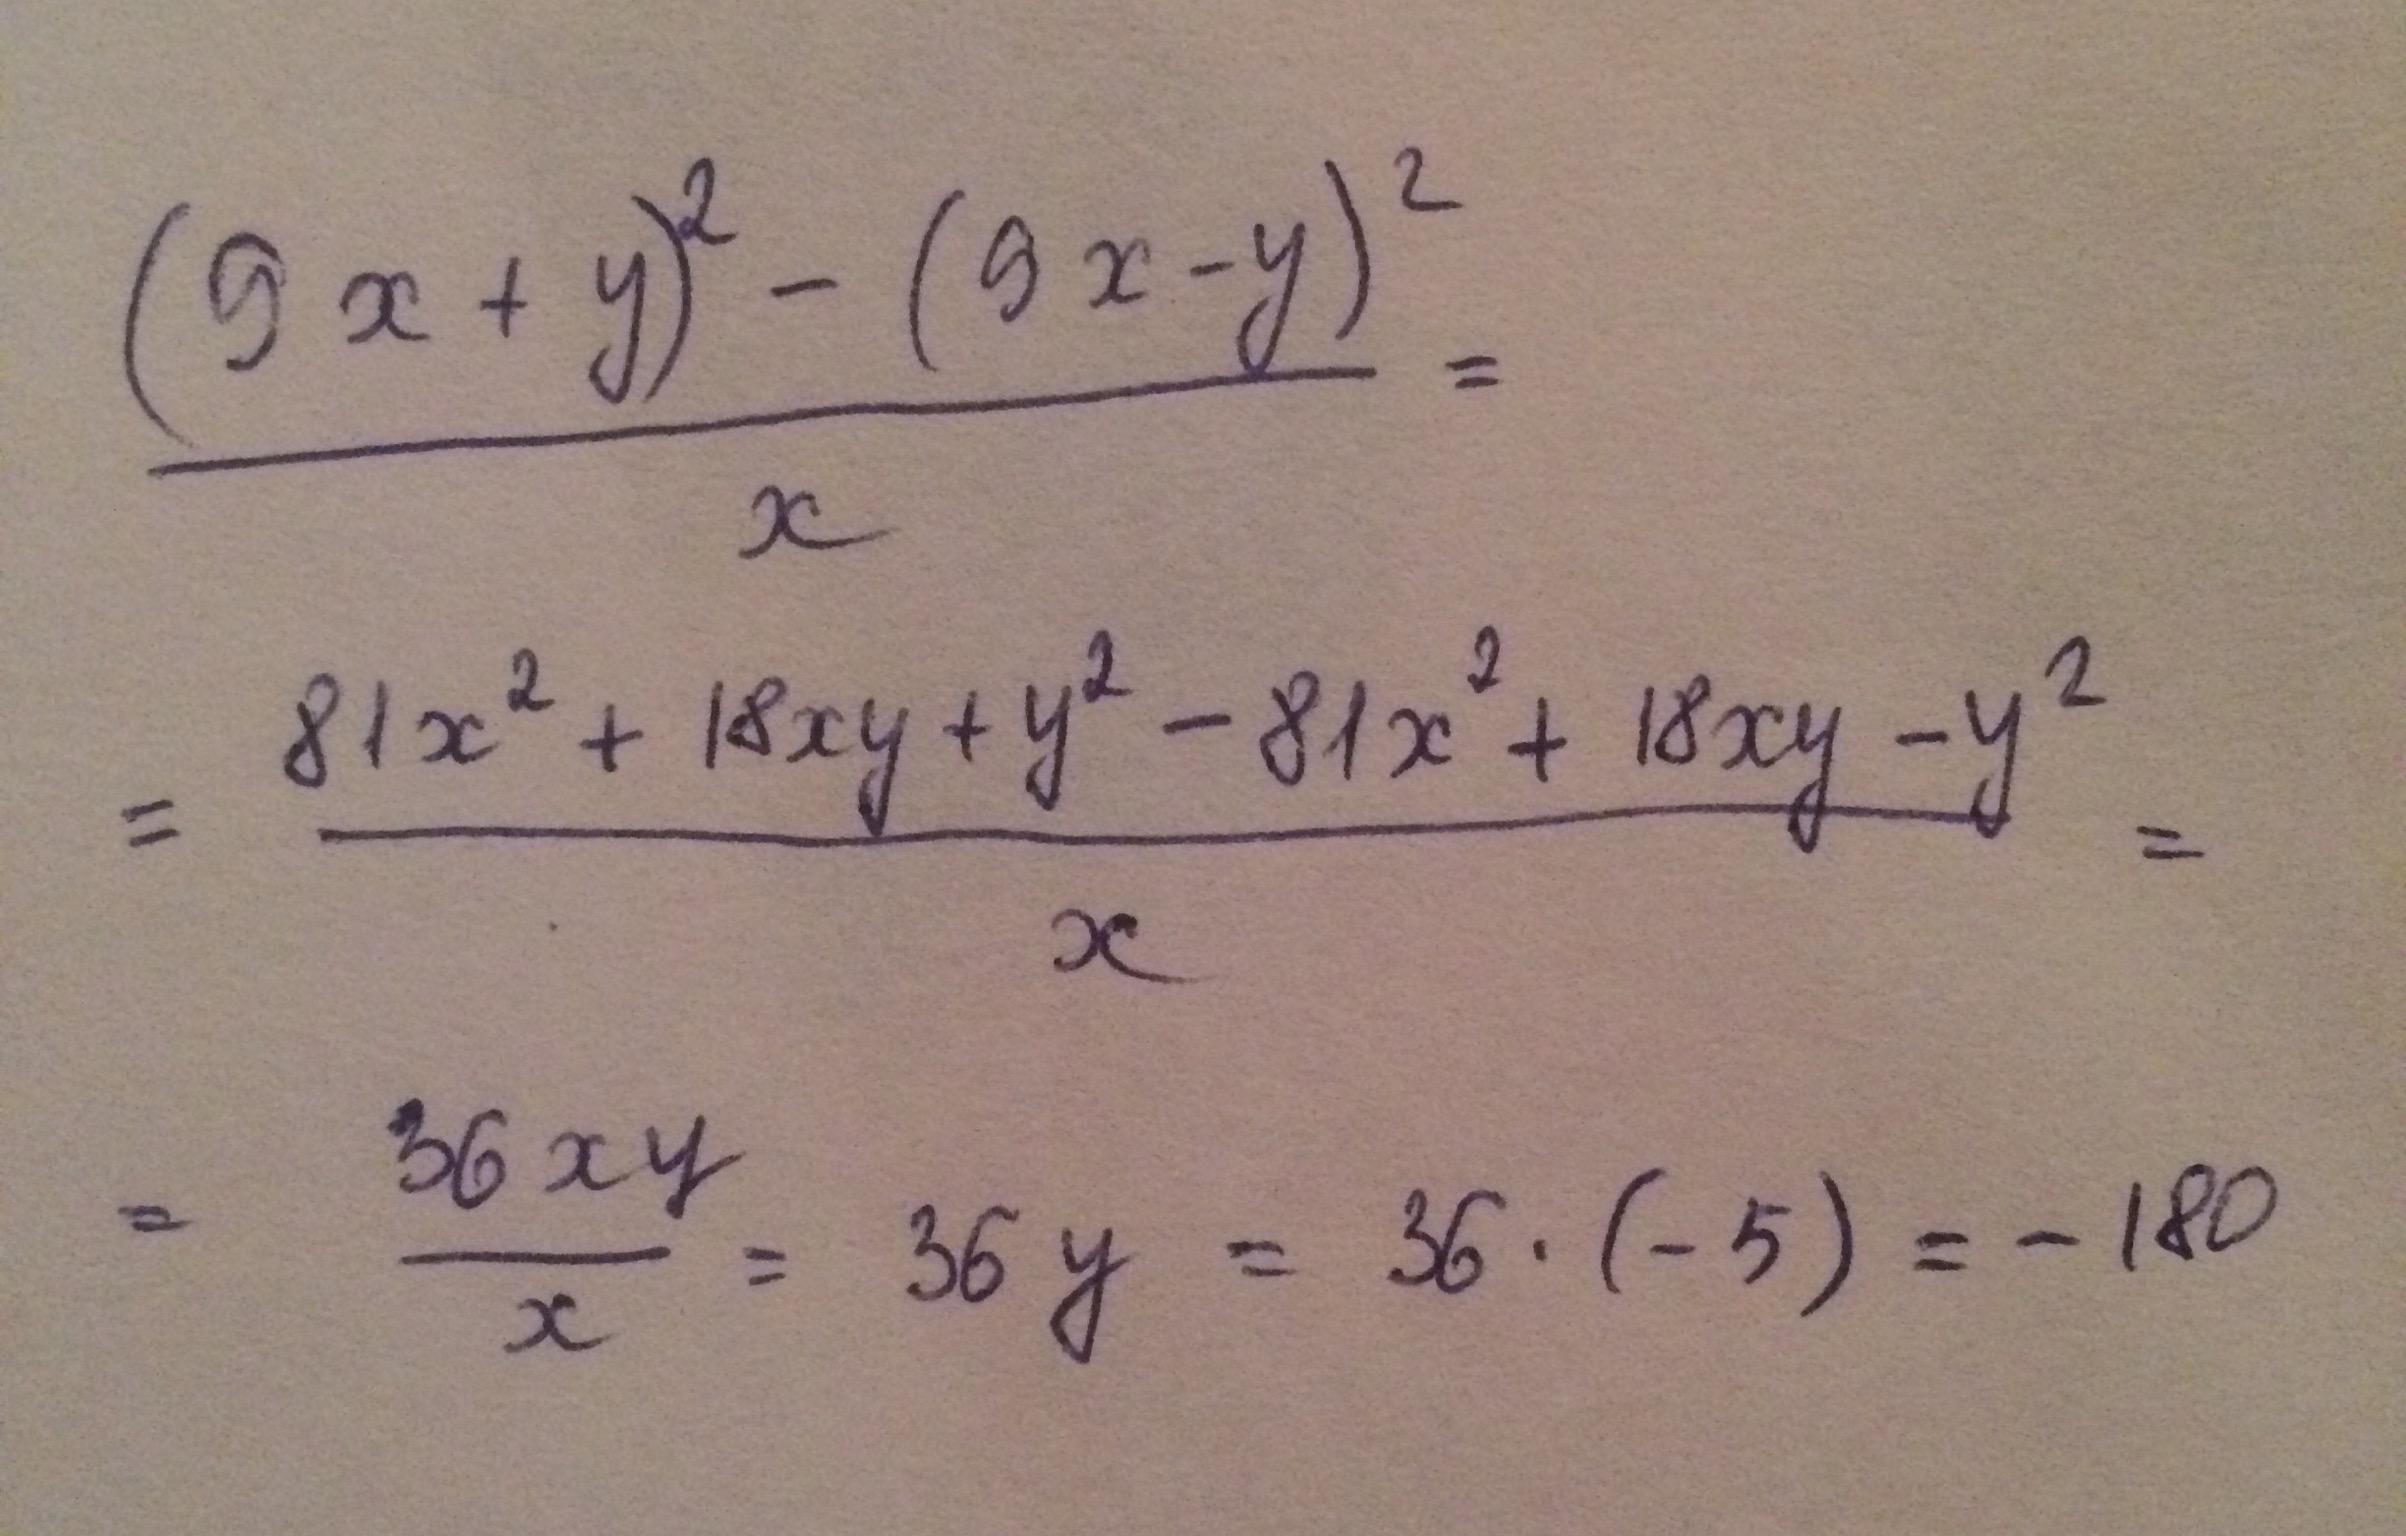 (9x+y)² - (9x-y)² / x =
= 81x² + 18xy + y² - 81x² + 18xy - y² / x =
= 36xy / x = 36y = 36 · (-5) = -180